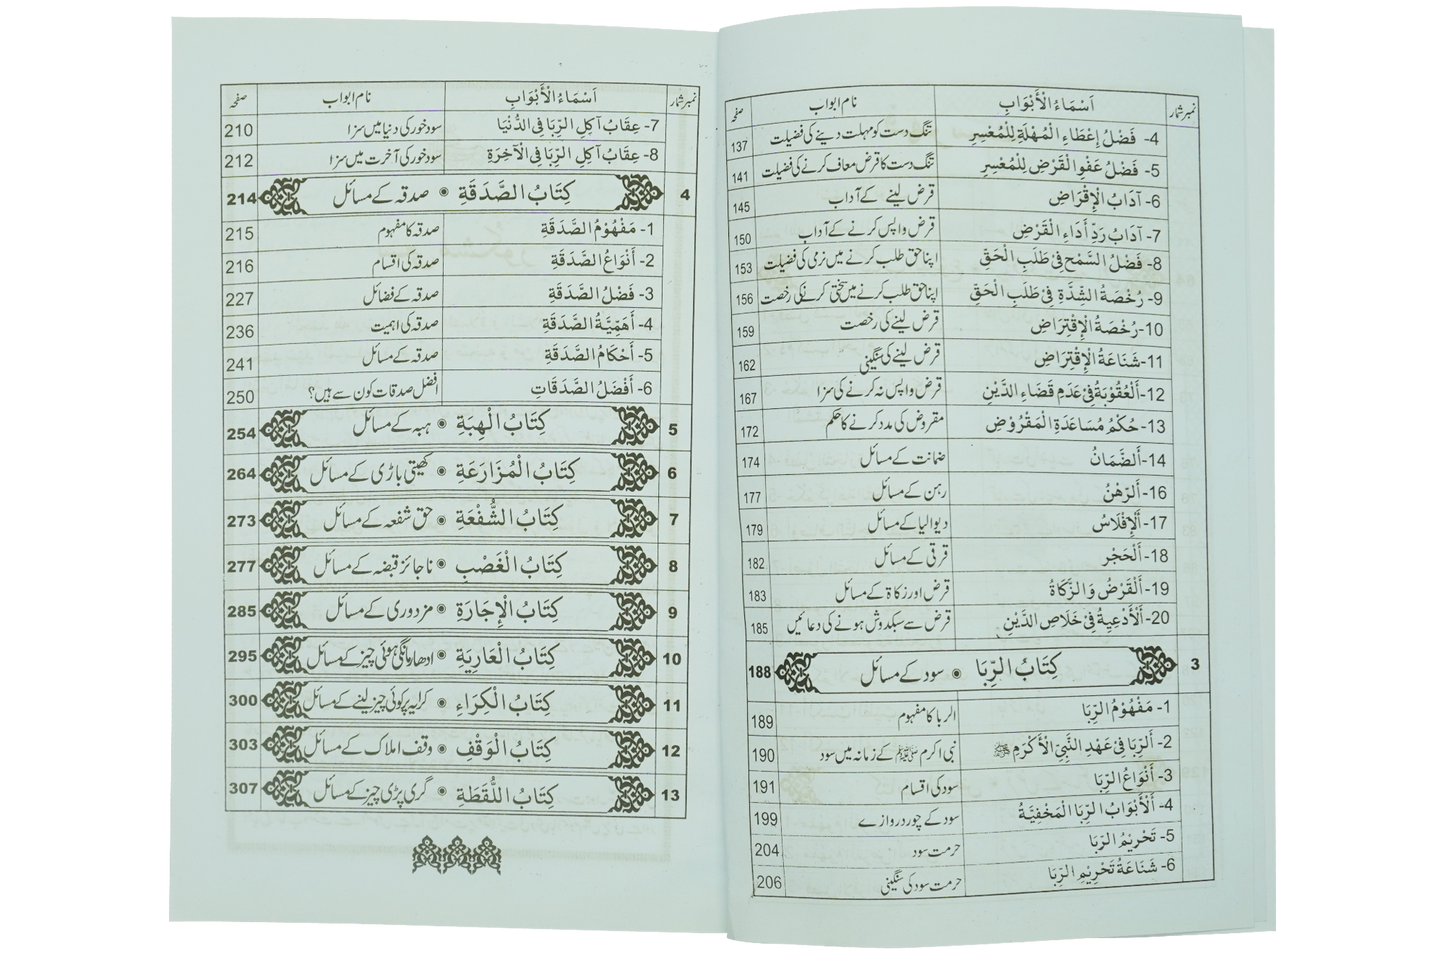 نمبر شمار اَسْمَاءُ الْأَبْوَابِ نام ابواب صفحہ
4- فَضْلُ إِعْطَاءِ الْمُهْلَةِ لِلْمُعْسِرِ تنگ دست کو مہلت دینے کی فضیلت 137
5- فَضْلُ عَفْوِ الْقَرْضِ لِلْمُعْسِرِ تنگ دست کا قرض معاف کرنے کی فضیلت 141
6- آدَابُ الْإِقْرَاضِ قرض لینے کے آداب 145
7- آدَابُ رَدِّ أَدَاءِ الْقَرْضِ قرض واپس کرنے کے آداب 150
8- فَضْلُ السَّمْحِ فِیْ طَلَبِ الْحَقِّ اپنا حق طلب کرنے میں نرمی کی فضیلت 153
9- رُخْصَةُ الشِّدَّةِ فِیْ طَلَبِ الْحَقِّ اپنا حق طلب کرنے میں سختی کرنے کی رخصت 156
10- رُخْصَةُ الْإِقْتِرَاضِ قرض لینے کی رخصت 159
11- شَنَاعَةُ الْإِقْتِرَاضِ قرض لینے کی سنگینی 162
12- اَلْعُقُوْبَةُ فِیْ عَدَمِ قَضَاءِ الدَّيْنِ قرض واپس نہ کرنے کی سزا 167
13- حُكْمُ مُسَاعَدَةِ الْمَقْرُوْضِ مقروض کی مدد کرنے کا حکم 172
14- اَلضَّمَانُ ضمانت کے مسائل 174
16- اَلرَّهْنُ رہن کے مسائل 177
17- اَلْإِفْلَاسُ دیوالیا کے مسائل 179
18- اَلْحَجْر قرقی کے مسائل 182
19- اَلْقَرْضُ وَ الزَّكَاةُ قرض اور زکاۃ کے مسائل 183
20- اَلْأَدْعِيَةُ فِیْ خَلَاصِ الدَّيْنِ قرض سے سبکدوش ہونے کی دعائیں 185
3 كِتَابُ الرِّبَا ◉ سود کے مسائل 188
1- مَفْهُوْمُ الرِّبَا الربا کا مفہوم 189
2- اَلرِّبَا فِیْ عَهْدِ النَّبِيِّ الْأَكْرَمِ ﷺ نبی اکرم ﷺ کے زمانہ میں سود 190
3- أَنْوَاعُ الرِّبَا سود کی اقسام 191
4- اَلْأَبْوَابُ الرِّبَا الْمَخْفِيَّةُ سود کے چور دروازے 199
5- تَحْرِيْمُ الرِّبَا حرمت سود 204
6- شَنَاعَةُ تَحْرِيْمِ الرِّبَا حرمت سود کی سنگینی 206
نمبر شمار اَسْمَاءُ الْأَبْوَابِ نام ابواب صفحہ
7- عِقَابُ آكِلِ الرِّبَا فِی الدُّنْيَا سود خور کی دنیا میں سزا 210
8- عِقَابُ آكِلِ الرِّبَا فِی الْآخِرَةِ سود خور کی آخرت میں سزا 212
4 كِتَابُ الصَّدَقَةِ ◉ صدقہ کے مسائل 214
1- مَفْهُوْمُ الصَّدَقَةِ صدقہ کا مفہوم 215
2- أَنْوَاعُ الصَّدَقَةِ صدقہ کی اقسام 216
3- فَضْلُ الصَّدَقَةِ صدقہ کے فضائل 227
4- أَهَمِّيَّةُ الصَّدَقَةِ صدقہ کی اہمیت 236
5- أَحْكَامُ الصَّدَقَةِ صدقہ کے مسائل 241
6- أَفْضَلُ الصَّدَقَاتِ افضل صدقات کون سے ہیں؟ 250
5 كِتَابُ الْهِبَةِ ◉ ہبہ کے مسائل 254
6 كِتَابُ الْمُزَارَعَةِ ◉ کھیتی باڑی کے مسائل 264
7 كِتَابُ الشُّفْعَةِ ◉ حق شفعہ کے مسائل 273
8 كِتَابُ الْغَصْبِ ◉ ناجائز قبضہ کے مسائل 277
9 كِتَابُ الْإِجَارَةِ ◉ مزدوری کے مسائل 285
10 كِتَابُ الْعَارِيَةِ ◉ ادھار مانگی ہوئی چیز کے مسائل 295
11 كِتَابُ الْكِرَاءِ ◉ کرایہ پر کوئی چیز لینے کے مسائل 300
12 كِتَابُ الْوَقْفِ ◉ وقف املاک کے مسائل 303
13 كِتَابُ اللُّقَطَةِ ◉ گری پڑی چیز کے مسائل 307